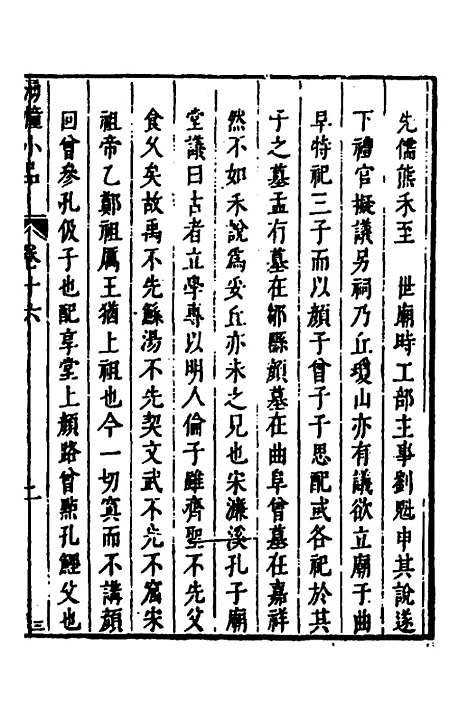 先儒熊禾至　世廟時工部主事劉魁申其說遂
下禮官擬議另祠乃丘瓊山亦有議欲立廟于曲
阜特祀三子而以顏子曾子子思配或各祀於其
子之墓孟有墓在鄒縣顏墓在曲阜曾墓在嘉祥
然不如禾說爲妥丘亦未之見也宋濂溪孔子廟
堂議曰古者立學專以明人倫子雖齊聖不先父
食久矣故禹不先鯀湯不先契文武不先不窋宋
祖帝乙鄭祖厲王猶上祖也今一切寘而不講顏
回曾參孔伋子也配享堂上顏路曾㸃孔鯉父也
湧幢小品
卷十六
二
三